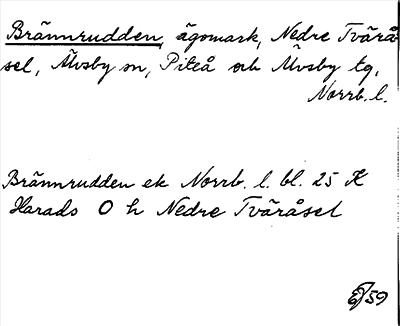 Brännrudden, ägomark, Nedre Tvärå
sel, Älvsby sn, Piteå och Älvsby tg,
Norrb. l.
Brännrudden ek Norrb. l. bl. 25 K
Harads O h Nedre Tväråsel
59